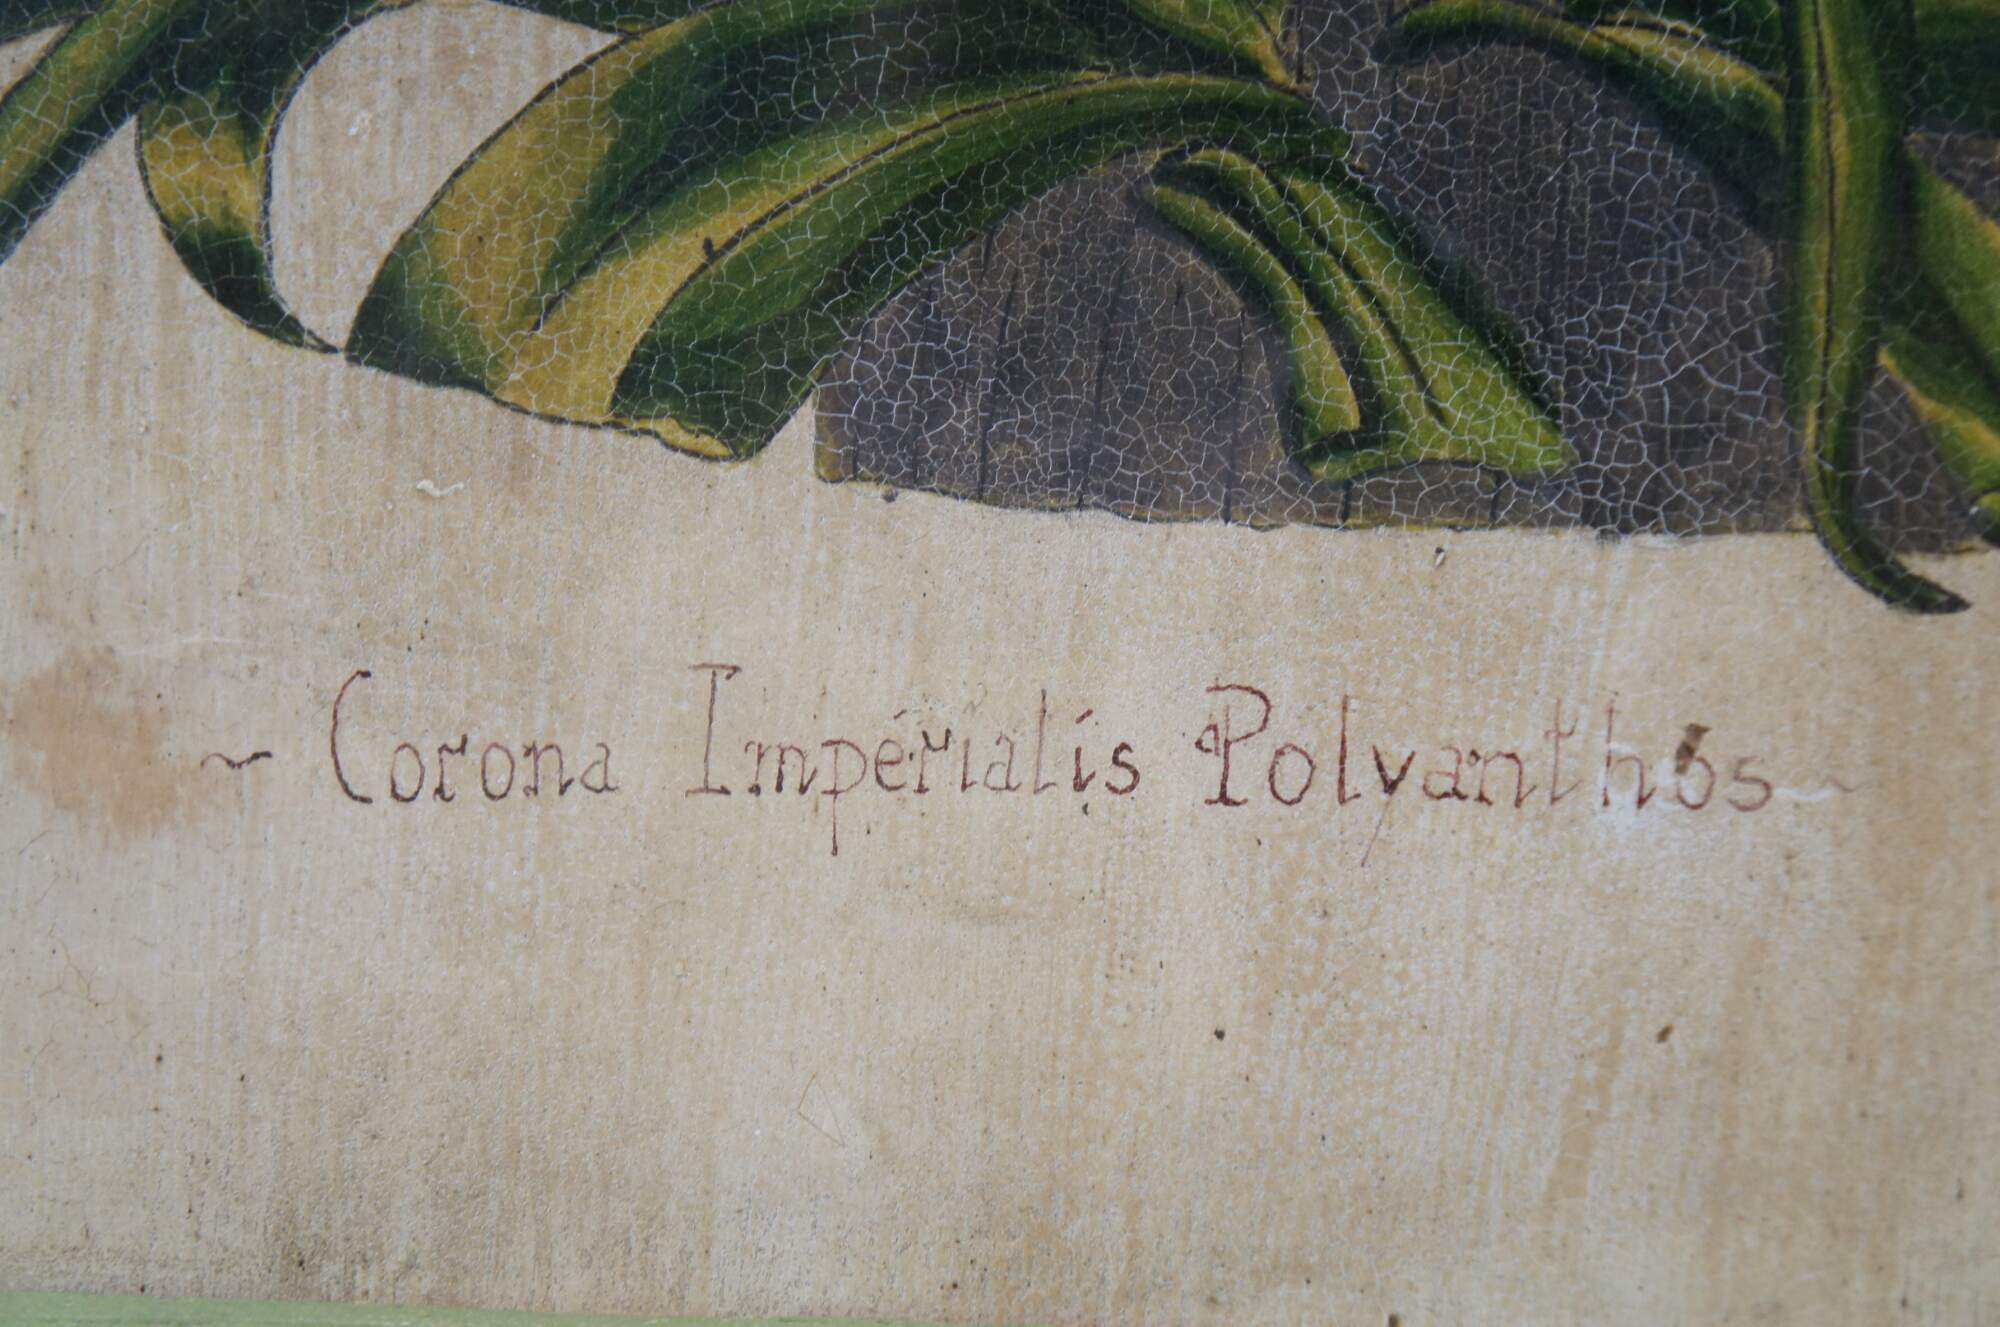 ~ Corona Imperialis Polyanthos ~